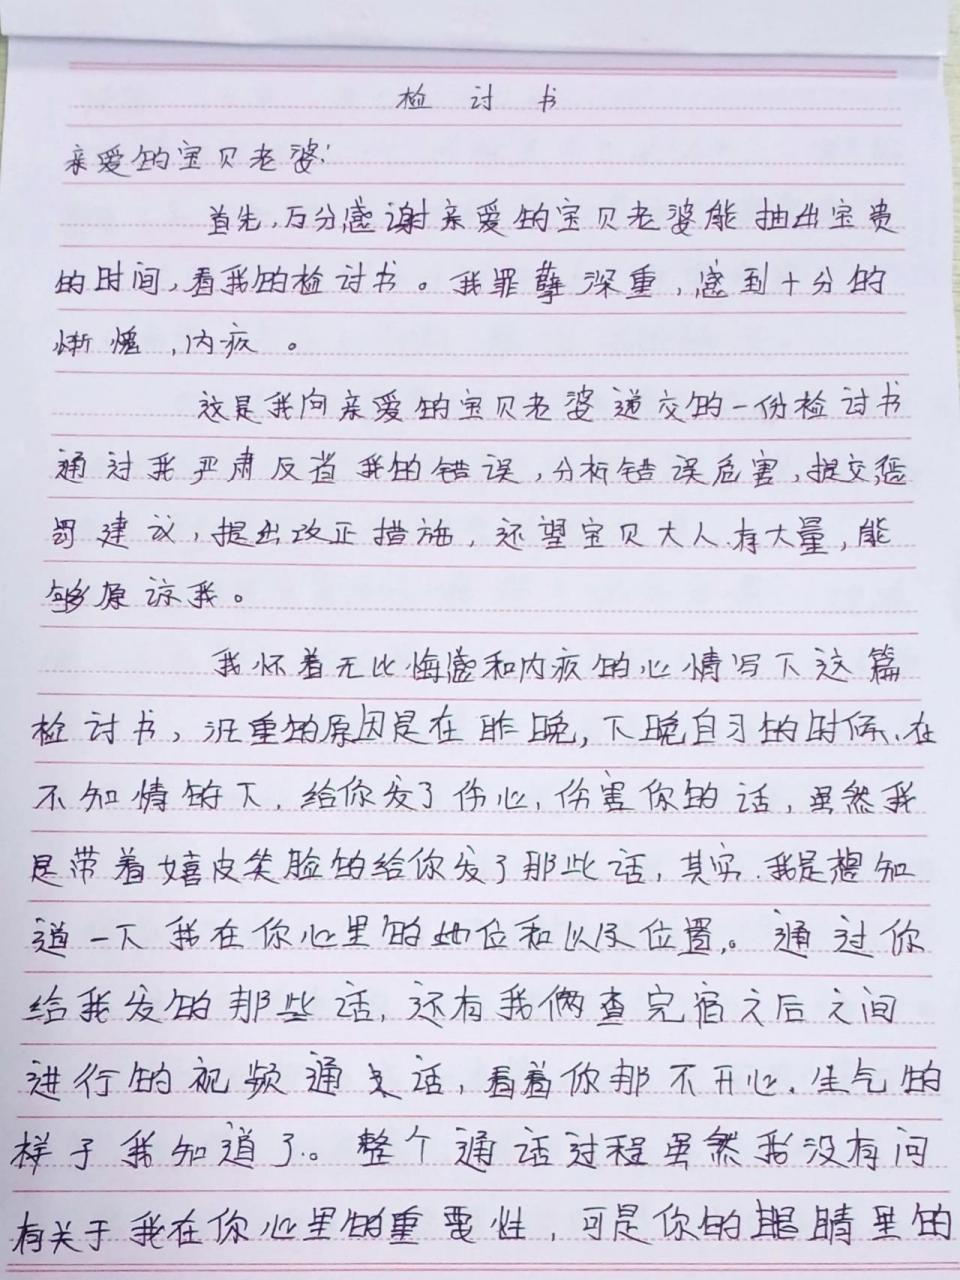 检讨书
亲爱的宝贝老婆:
首先,万分感谢亲爱的宝贝老婆能抽出宝贵
的时间,看我的检讨书。我罪孽深重,感到十分的
惭愧,内疚。
这是我向亲爱的宝贝老婆递交的一份检讨书
通过我严肃反省我的错误,分析错误危害,提交惩
罚建议,提出改正措施,还望宝贝大人有大量,能
够原谅我。
我怀着无比悔感和内疚的心情写下这篇
检讨书,沉重的原因是在昨晚,下晚自习的时候、在
不知情的下,给你发了伤心,伤害你的话,虽然我
是带着嬉皮笑脸的给你发了那些话,其实,我是想知
道一下我在你心里的地位和以及位置。通过你
给我发的那些话,还有我俩查完宿之后之间
进行的视频通话,看着你那不开心、生气的
样子我知道了。整个通话过程虽然我没有问
有关于我在你心里的重要性,可是你的眼睛里的